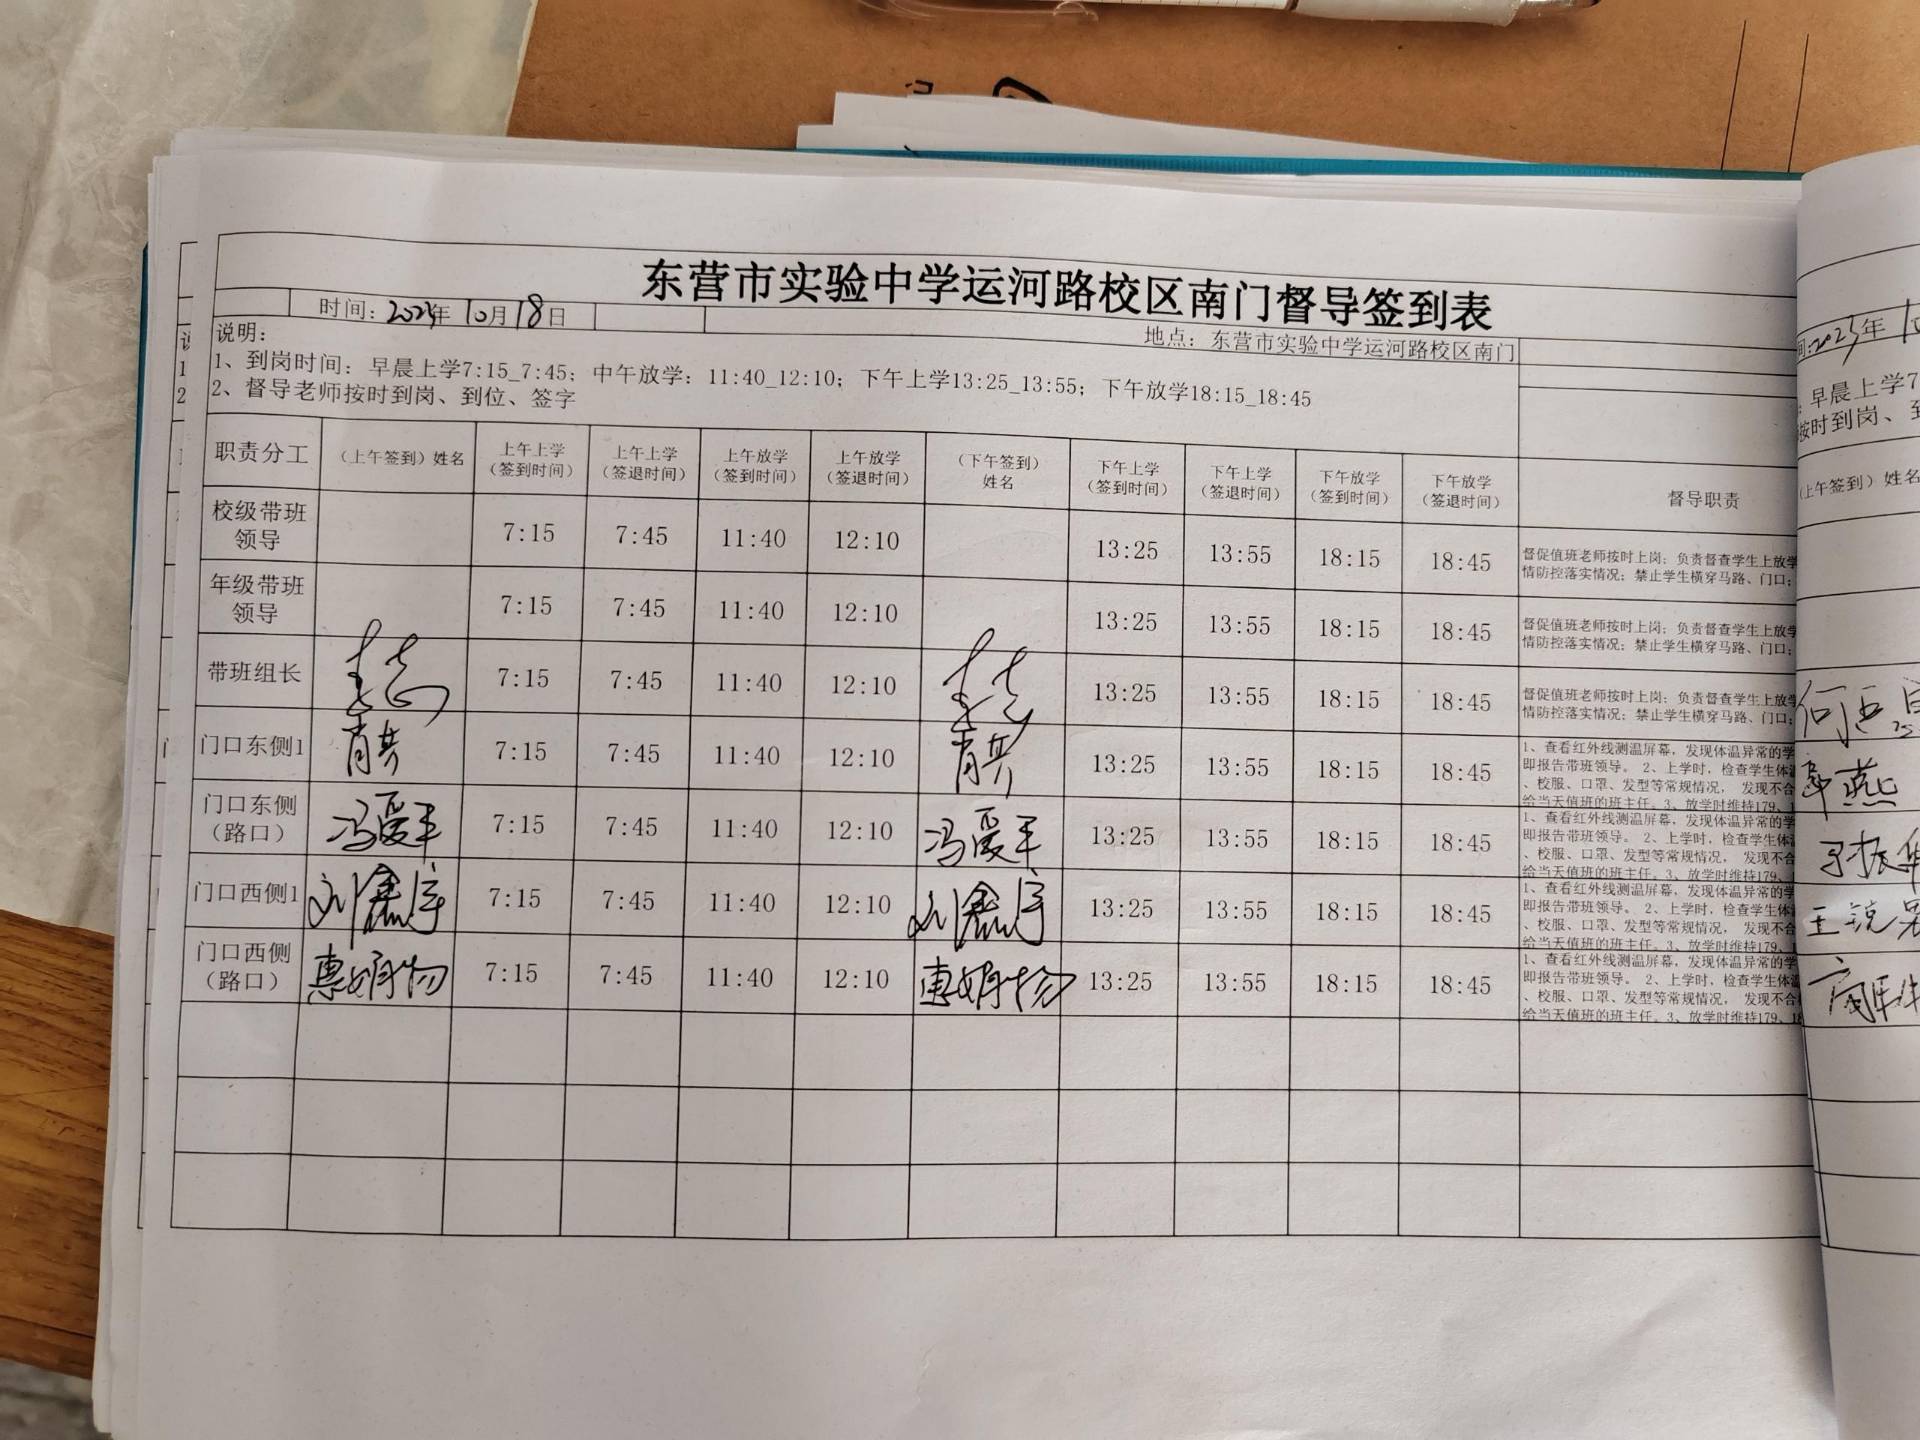 东营市实验中学运河路校区南门督导签到表
时间：2023年 10月18日
地点：东营市实验中学运河路校区南门
说明：
1、到岗时间：早晨上学7:15_7:45；中午放学：11:40_12:10；下午上学13:25_13:55；下午放学18:15_18:45
2、督导老师按时到岗、到位、签字
职责分工 （上午签到）姓名 上午上学（签到时间） 上午上学（签退时间） 上午放学（签到时间） 上午放学（签退时间） （下午签到）姓名 下午上学（签到时间） 下午上学（签退时间） 下午放学（签到时间） 下午放学（签退时间） 督导职责
校级带班领导 7:15 7:45 11:40 12:10 13:25 13:55 18:15 18:45
督促值班老师按时上岗；负责督查学生上放学
情防控落实情况；禁止学生横穿马路、门口；
年级带班领导 7:15 7:45 11:40 12:10 13:25 13:55 18:15 18:45
督促值班老师按时上岗；负责督查学生上放学
情防控落实情况；禁止学生横穿马路、门口；
带班组长 7:15 7:45 11:40 12:10 13:25 13:55 18:15 18:45
督促值班老师按时上岗；负责督查学生上放学
情防控落实情况；禁止学生横穿马路、门口；
门口东侧1 7:15 7:45 11:40 12:10 13:25 13:55 18:15 18:45
1、查看红外线测温屏幕，发现体温异常的学
即报告带班领导。 2、上学时，检查学生体温
、校服、口罩、发型等常规情况， 发现不合
给当天值班的班主任。3、放学时维持179、1
门口东侧（路口） 冯爱军 7:15 7:45 11:40 12:10 冯爱军 13:25 13:55 18:15 18:45
1、查看红外线测温屏幕，发现体温异常的学
即报告带班领导。 2、上学时，检查学生体温
、校服、口罩、发型等常规情况， 发现不合
给当天值班的班主任。3、放学时维持179、1
门口西侧1 刘鑫宇 7:15 7:45 11:40 12:10 刘鑫宇 13:25 13:55 18:15 18:45
1、查看红外线测温屏幕，发现体温异常的学
即报告带班领导。 2、上学时，检查学生体温
、校服、口罩、发型等常规情况， 发现不合
给当天值班的班主任。3、放学时维持179、1
门口西侧（路口） 7:15 7:45 11:40 12:10 13:25 13:55 18:15 18:45
1、查看红外线测温屏幕，发现体温异常的学
即报告带班领导。 2、上学时，检查学生体温
、校服、口罩、发型等常规情况， 发现不合
给当天值班的班主任。3、放学时维持179、18
间：2023年 10
早晨上学7
按时到岗、到
（上午签到）姓名